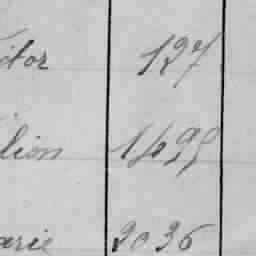 ictor 127
lion 1499
arie 2036